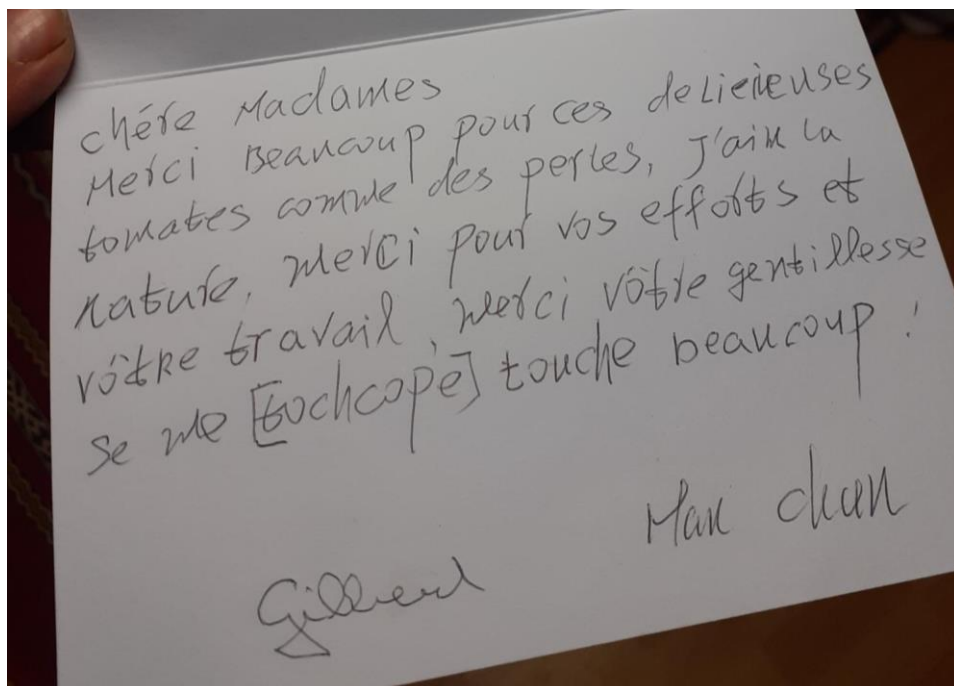 chére Madames
Merci Beaucoup pour ces delicieuses
tomates comme des perles, J'aim la
nature, merci pour vos efforts et
vôtre travail, merci vôtre gentillesse
se me [tochcopé] touche beaucoup !
Man chun
Gilbert